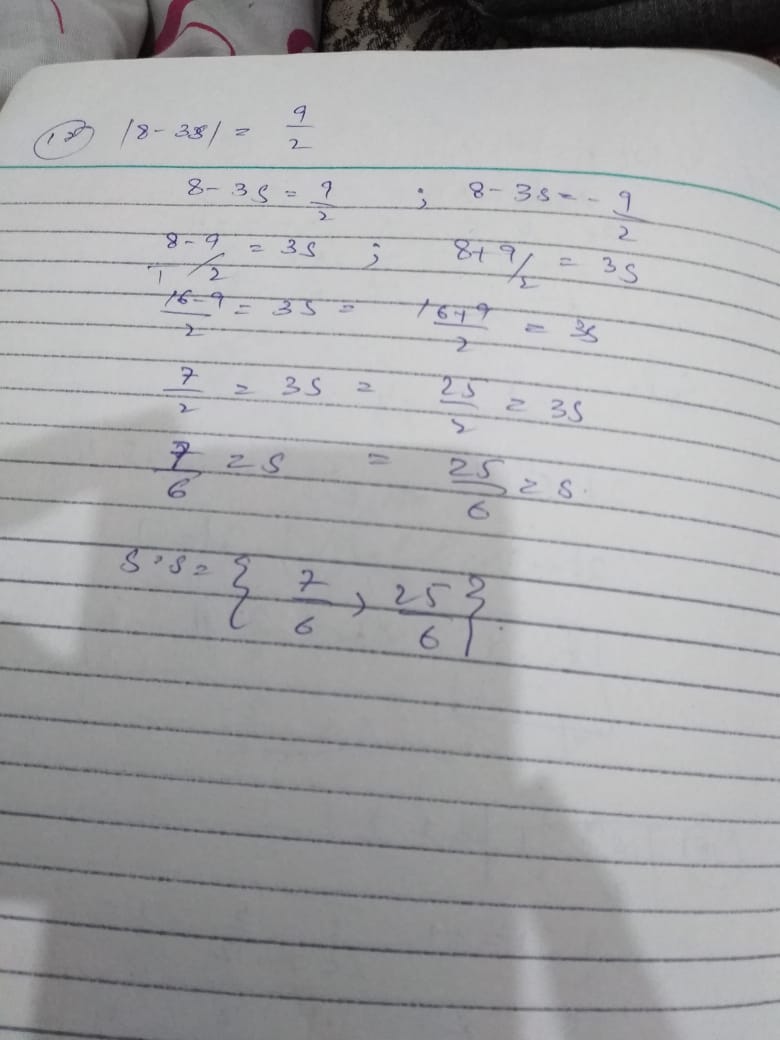 12 |8-3s| = 9/2
8-3s = 9/2 ; 8-3s = -9/2
8/1 - 9/2 = 3s ; 8+9/2 = 3s
16-9/2 = 3s = 16+9/2 = 3s
7/2 = 3s = 25/2 = 3s
7/6 = s = 25/6 = s.
S.S = { 7/6 , 25/6 }